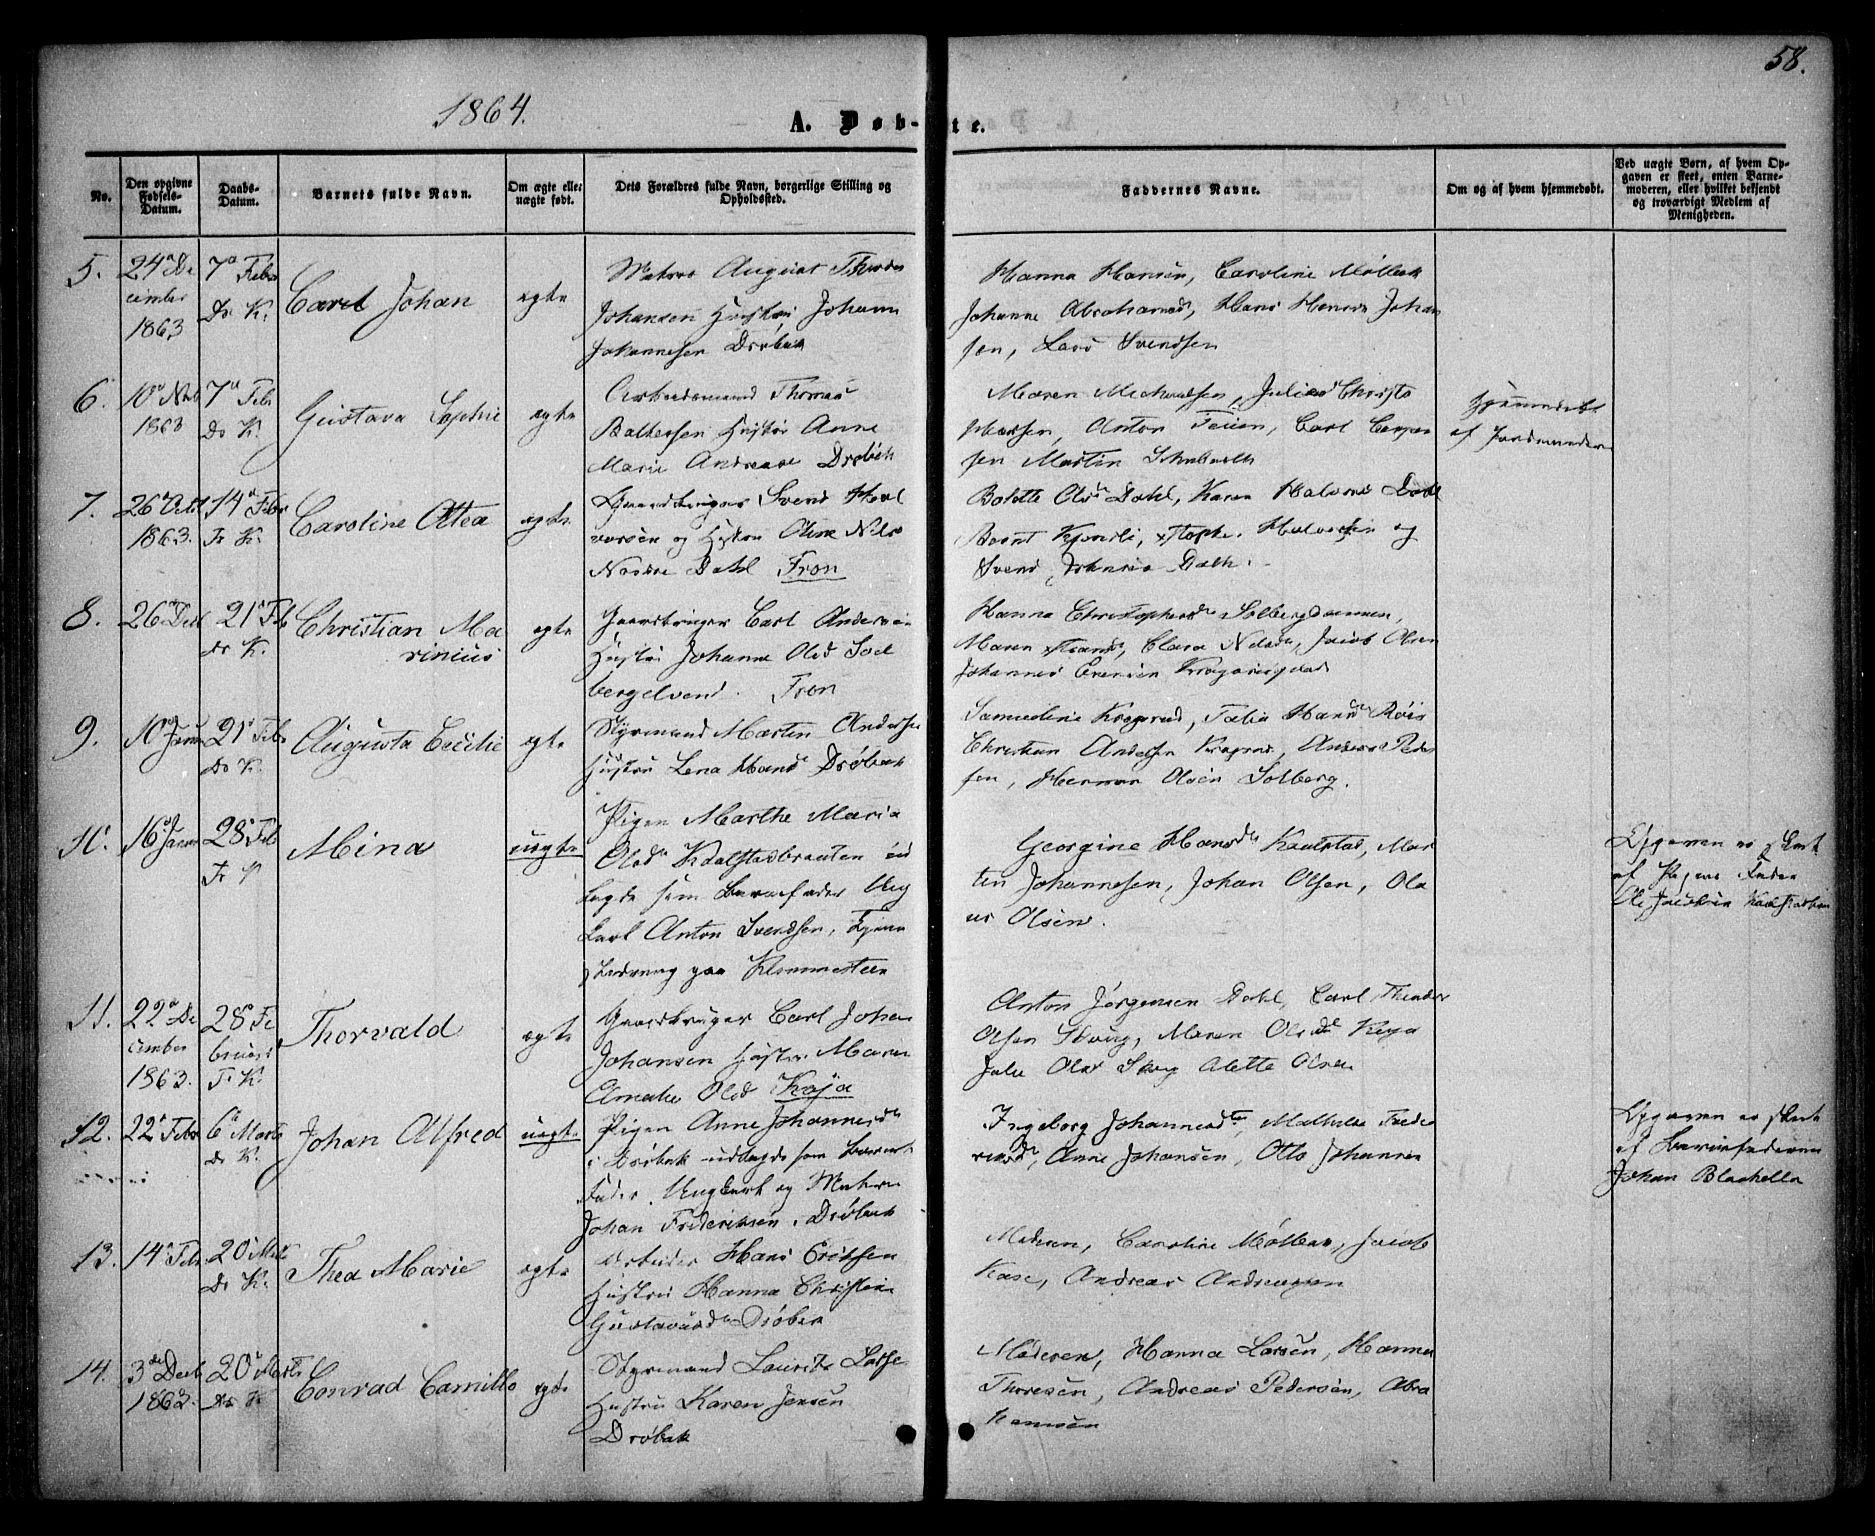 58.
1864.
A. Døb-te.
No.
Den opgivne
Fødsels-
Datum.
Daabs-
Datum.
Barnets fulde Navn.
Om ægte eller
uægte født.
Dets Forældres fulde Navn, borgerlige Stilling og
Opholdssted.
Faddernes Navne.
Om og af hvem hjemmedøbt.
Ved uægte Børn, af hvem Op-
gaven er skeet, enten Barne-
moderen, eller hvilket bekjendt
og troværdigt Medlem af
Menigheden.
5.
24 De
cember
1863
7 Febr
Dr K.
Carel Johan
ægte
Matros August
Johansen Hustru Johann
Johannesen Drøbak
Hanna Hansen, Caroline Møller
Johanne Abrahamsd, Hans Hansen Johan
sen, Lars Svendsen
6.
10 Nov
1863
7 Febr
Dr K.
Gustava Sophie
ægte
Arbeidsmand Thomas
Baltersen Hustru Anne
Marie Andrease Drøbak
Maren Michaelsen, Julies Christo
Anton Carl
sen Martin
Hjemmedøbt
af Jordmoderen
7.
26 Octb
1863.
14 Febr
Fr K.
Caroline Attea
ægte
Gaardbruger Svend Hal
vorsen og Hustru Oline Nils
Dahl Fron
Bolette Olsd Dahl, Karen Halvors Dahl
Bernt Halvorsen og
Svend Johnsen Dahl.
8.
26 Decb
21 Feb
Dr K.
Christian Ma
rinius
ægte
Gaardbruger Carl Andersen
Hustru Johanne Olsd Sol
bergelvend. Fron
Hanna Christophersd
Maren Clara Nilsd, Jacob Olsen
Johannes Evensen
9.
10 Janu
21 Febr
Dr K.
Augusta Cecilie
ægte
Styrmand Martin Anderse
Hustru Lena Hansd Drøbak
Samueline Krogsrud, Talia Hansd
Christian Andersen Anders Peder
sen, Herman Olsen Solberg.
10.
16 Janu
28 Feb
Fr K
Mina
uægte
Pigen Marthe Maria
Olsd Kaalstadbraaten ud
lagde som Barnefader Ung
karl Anton Svendsen, Tjene
paa
Georgine Hansd Kaalstad, Mar
tin Johannesen, Johan Olsen, Ola
us Olsen.
Opgaven er skeet
af Pigens Fader
Ole Jacobsen
11.
22 De
cember
1863.
28 Fe
bruar
Fr K.
Thorvald
ægte
Gaardbruger Carl Johan
Johansen Hustru Maren
Olsd Kaja
Anton Jørgensen Dahl, Carl Theodor
Olsen Skoug, Maren Olsd Kaja
Julie Olsd Skoug Alette Olsen
12.
22 Febr
6 Marts
Dr K.
Johan Alfred
uægte
Pigen Anne Johannesd
i Drøbak udlagde som Barnets
Fader Ungkarl og Matros
Johan Frederiksen, Drøbak
Ingeborg Johannesd, Mathilde Frede
riksd, Anne Johansen, Otto Johannes
Opgaven er skeet
af Barnefaderen
Johan
13.
14 Febr
20 Mart
Dr K.
Thea Marie
ægte
Arbeider Hans Eriksen
Hustru Hanna Christine
Gustavusd Drøbak
Moderen, Caroline Møller, Jacob
Andreas Andreassen
14.
3 Decb
1863.
20 Marts
Dr K
Conrad Camillo
ægte
Styrmand Laurits Larse
Hustru Karen Jensen
Drøbak
Moderen, Hanna Larsen, Hanna
Thoresen, Andreas Pedersen, Abra
hamsen